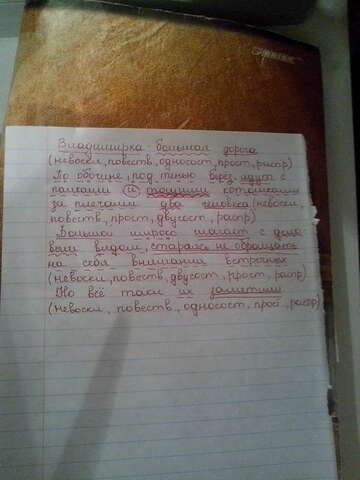 Владимирка - большая дорога
(невоскл, повеств, односост, прост, распр)
По обочине, под тенью берёз, идут с
палками и тощими котомками
за плечами два человека (невоскл,
повеств, прост, двусост, распр)
Большой широс шагает с дело
вым видом, стараясь не обращать
на себя внимания встречных
(невоскл, повеств, двусост, прост, распр)
Но всё таки их заметили
(невоскл, повеств, односост, прост, распр)